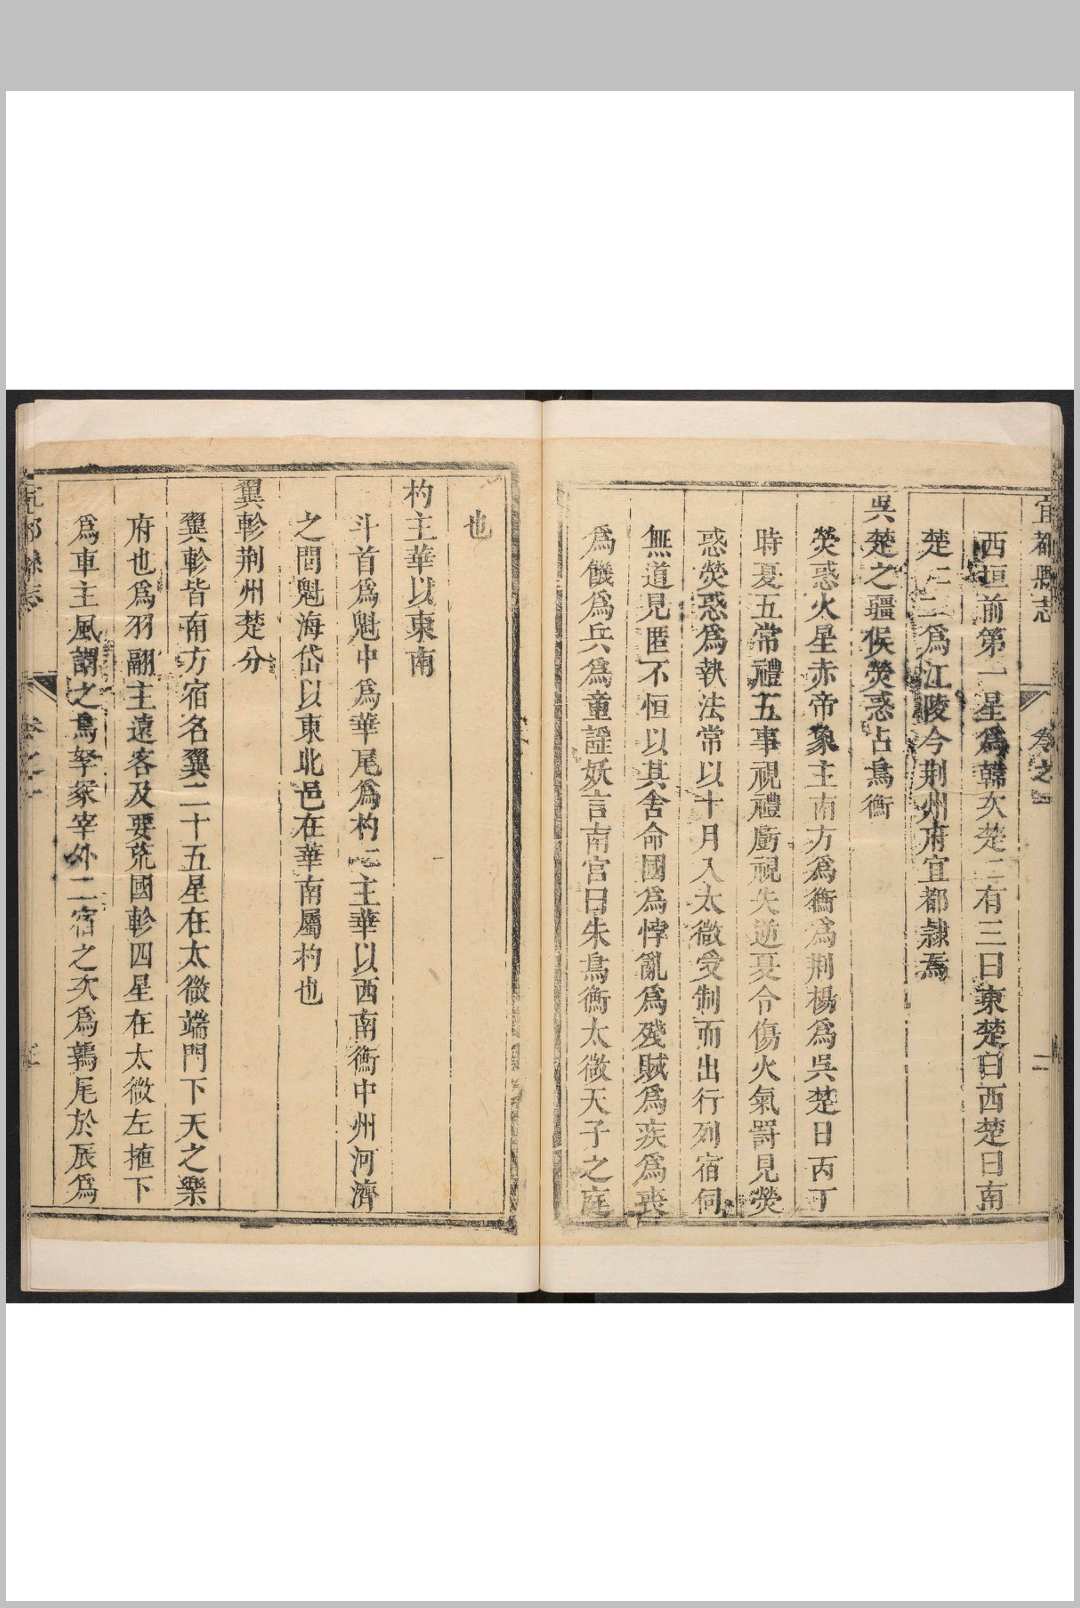 宜都縣志
卷之一
二
西垣前第一星爲韓次楚〻有三曰東楚曰西楚曰南
楚〻〻爲江陵今荆州府宜都隷焉
吳楚之疆候熒惑占鳥衡
熒惑火星赤帝象主南方爲衡爲荆楊爲吳楚日丙丁
時夏五常禮五事視禮虧視失逆夏令傷火氣罰見熒
惑熒惑爲執法常以十月入太微受制而出行列宿伺
無道見匿不恒以其舍命國爲悖亂爲殘賊爲疾爲喪
爲饑爲兵爲童謡妖言南宫曰朱鳥衡太微天子之庭
也
杓主華以東南
斗首爲魁中爲華尾爲杓〻主華以西南衡中州河濟
之間魁海岱以東北邑在華南屬杓也
翼軫荆州楚分
翼軫皆南方宿名翼二十五星在太微端門下天之樂
府也爲羽翮主遠客及要荒國軫四星在太微左掖下
爲車主風謂之鳥孥冢宰外二宿之次爲鶉尾於辰爲